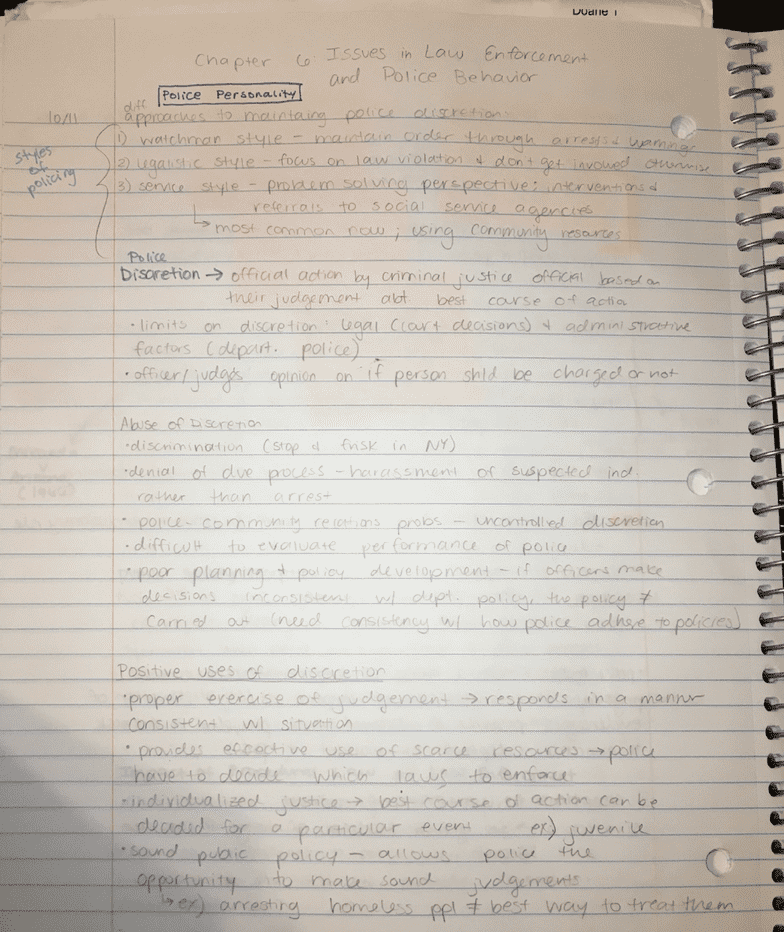 Duane
Chapter 6 Issues in Law Enforcement
and Police Behavior
Police Personality
diff
10/11 approaches to maintaing police discretion:
styles of policing
1) watchman style - maintain order through arrests & warnings
2) legalistic style - focus on law violation & don't get involved otherwise
3) service style - problem solving perspective: interventions &
referrals to social service agencies
↳ most common now; using community resources
Police
Discretion → official action by criminal justice official based on
their judgement abt best course of actio
• limits on discretion: legal (court decisions) & administrative
factors (depart. police)
• officer/judges opinion on if person shld be charged or not
Abuse of Discretion
• discrimination (stop & frisk in NY)
• denial of due process - harassment of suspected ind.
rather than arrest
• police-community relations probs - uncontrolled discretion
• difficult to evaluate performance of police
• poor planning & policy development - if officers make
decisions inconsistent w/ dept. policy, the policy ≠
carried out (need consistency w/ how police adhere to policies)
Positive uses of discretion
• proper exercise of judgement → responds in a manner
consistent w/ situation
• provides effective use of scarce resources → police
have to decide which laws to enforce
• individualized justice → best course of action can be
decided for a particular event ex) juvenile
• sound public policy - allows police the
opportunity to make sound judgements
↳ ex) arresting homeless ppl ≠ best way to treat them